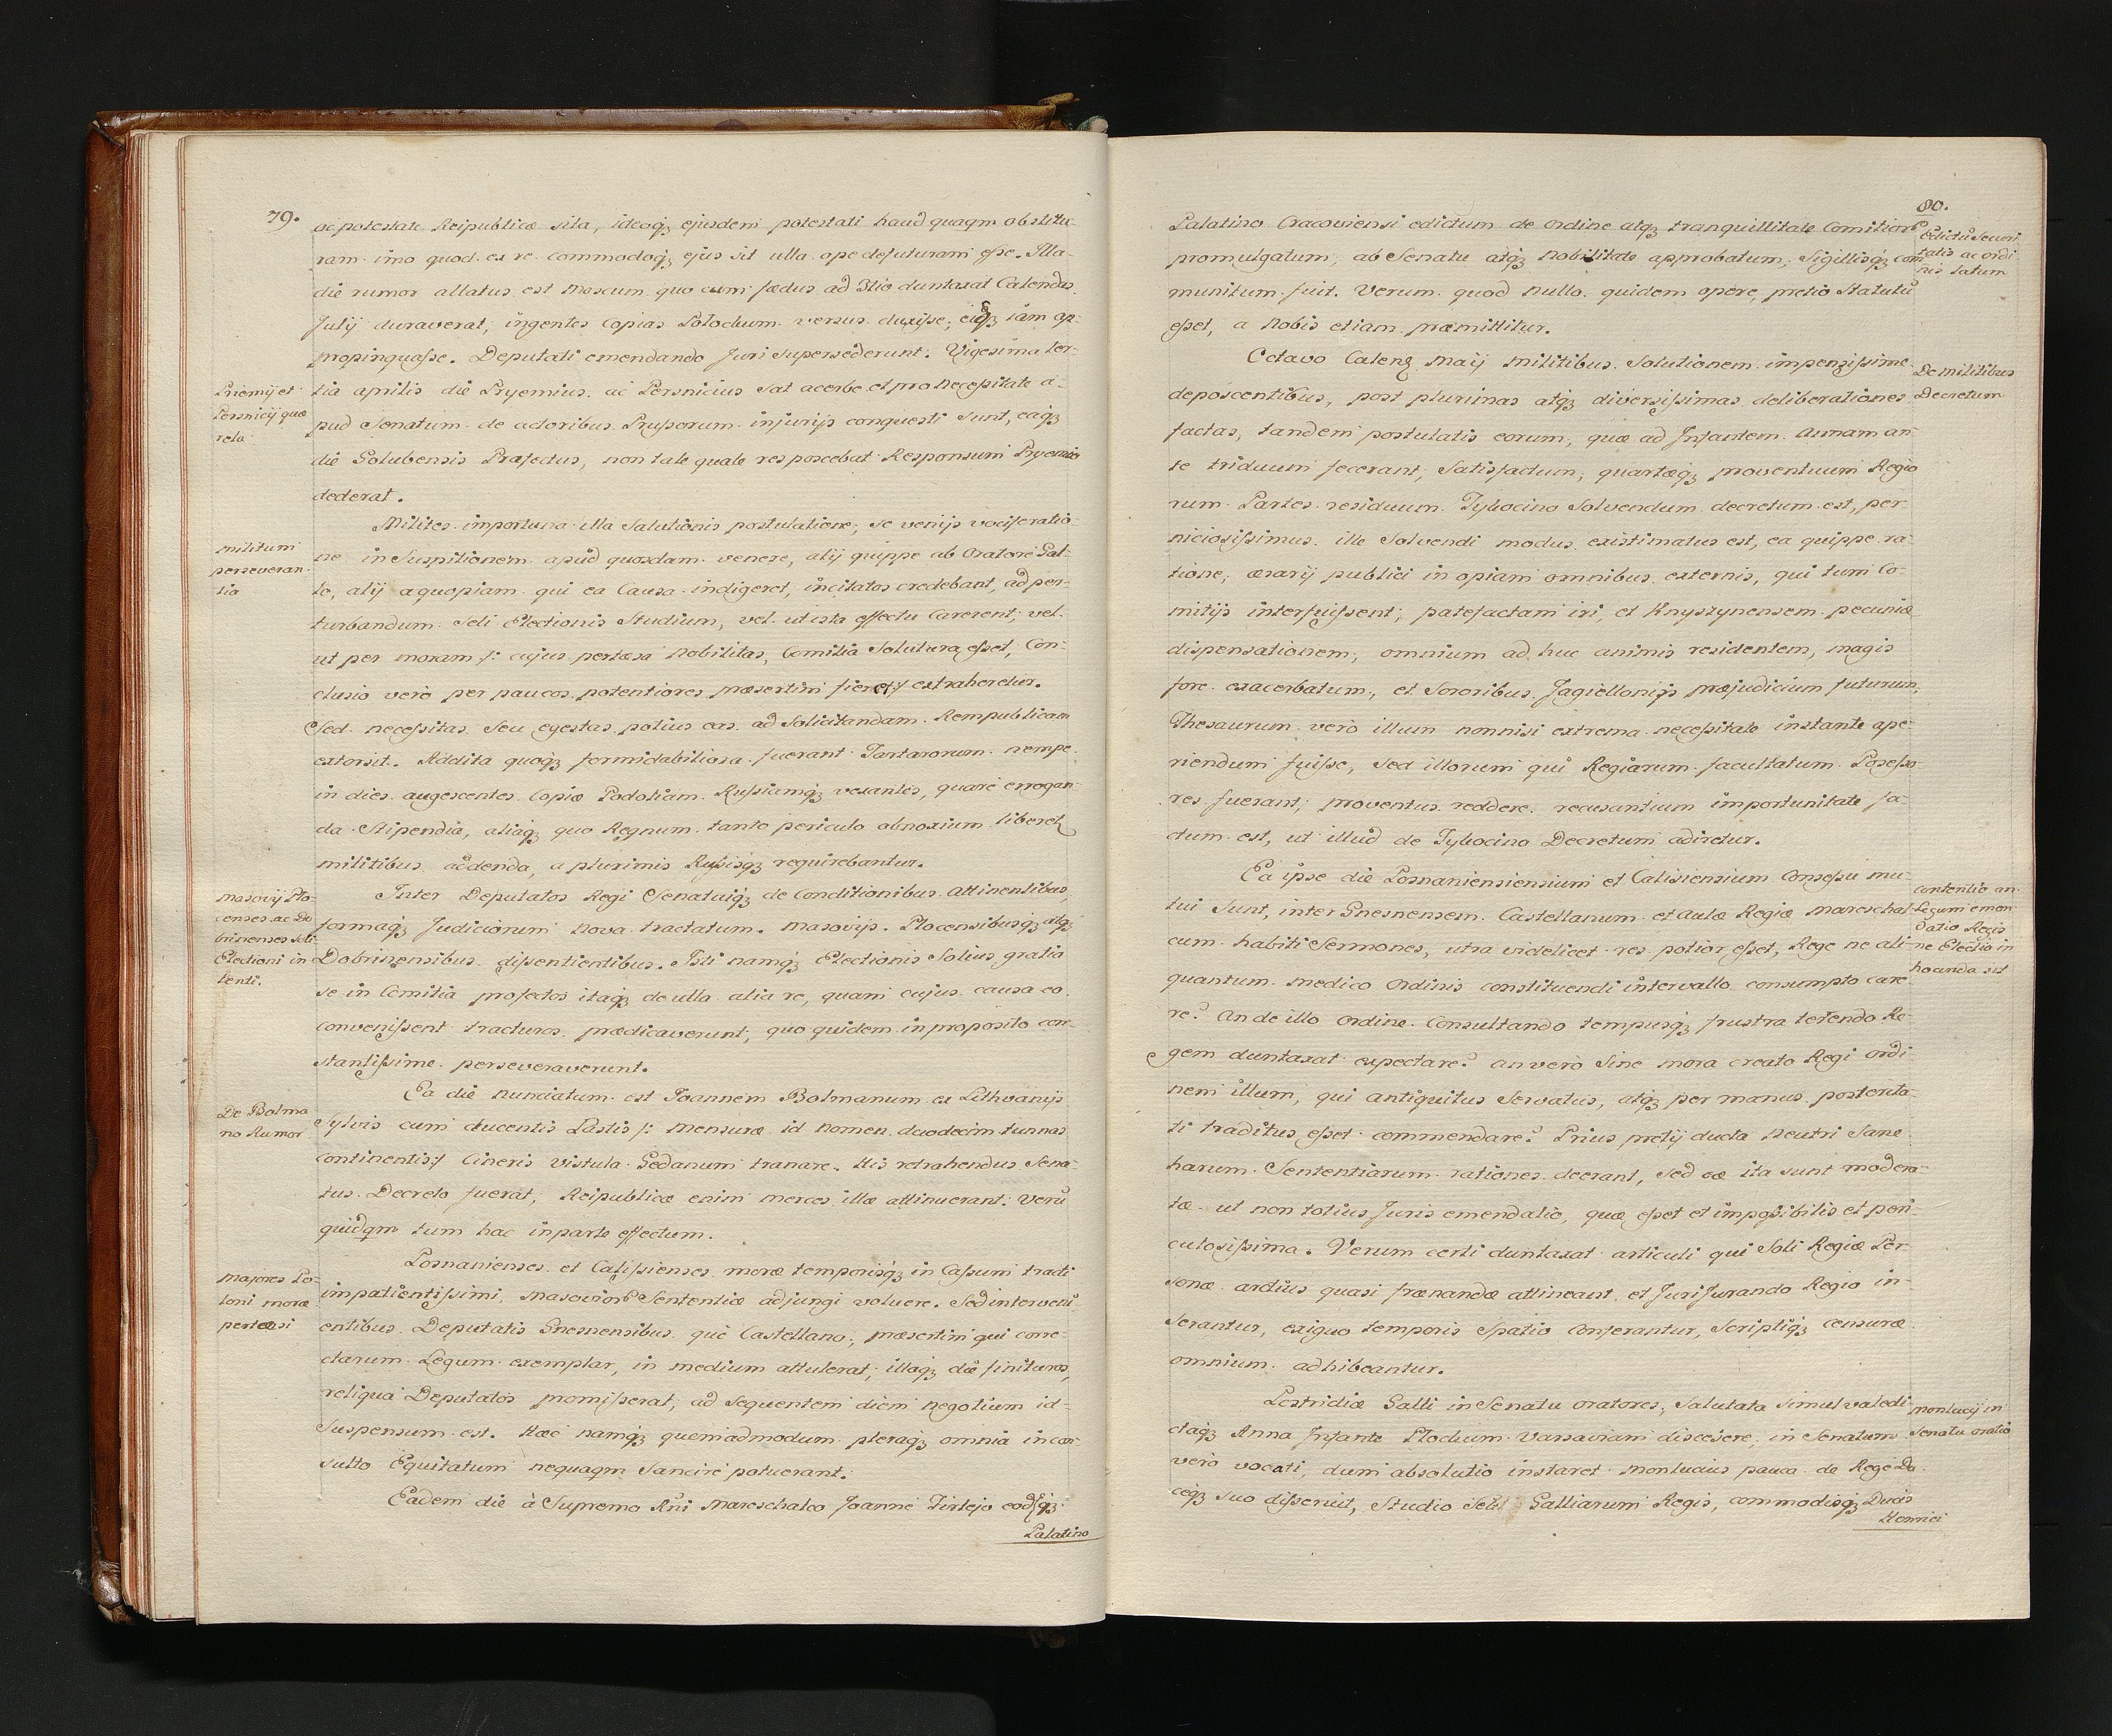 79.
ac potestate Reipublicæ sita, ideoq́ꝫ ejusdem potestati haud quaqm obstitu-
ram imo quod ex re commodoq́ꝫ ejus sit ulla ope defuturam eſse. Illa-
die rumor allatus est Moscum quo cum fædus ad Itio duntaxat Calendas
Julij duraverat, ingentes Copias Polochum versus duxiſse; eiq́ꝫ iam ap-
propinquaſse. Deputati emendando Juri Supersederunt. Vigesima ter-
Priemij et
Persnicij quæ
rela
tia aprilis die Pryemius ac Persnicius Sat acerbe et pro Neceſsitate a-
pud Senatum de actoribus Pruſsorum injurijs conquesti sunt, eaq́ꝫ
die Golubensis Præfectus, non tale quale res poscebat Responsum Pryemio
dederat.
Militum
perseveran
tia
Milites importuna illa Salutionis postulatione, se venijs vociferatio-
ne in Suspitionem apud quosdam venere, alij quippe ab Oratore Gal-
lo, alij a quopiam qui ea Causa indigeret, incitatos credebant, ad per-
turbandum Seli Electionis Studium, vel ut ista effectu Carerent, vel
ut per moram /: cujus pertæsa Nobilitas, Comitia Solutura eſset, Con-
clusio verò per paucos potentiores præsertim fieret :/ extraheretur.
Sed neceſsitas Seu egestas potius eas ad Solicitandam Rempublicam
extorsit. Addita quoq́ꝫ formidabiliora fuerant Tartarorum nempe
in dies augescentes Copiæ Podoliam Ruſsiamq́ꝫ vexantes, quare erogan-
da Stipendia, aliaq́ꝫ quo Regnum tanto periculo obnoxium liberetꝫ
militibus addenda, a plurimis Ruſsisq́ꝫ requirebantur.
Masovij Plo-
censes ac Do
brinenses soli
Electioni in
tenti.
Inter Deputatos Regi Senatuiq́ꝫ de Conditionibus attinentibus,
formaq́ꝫ Judiciorum Nova tractatum. Masovijs Plocensibusq́ꝫ atq́ꝫ
Dobrinensibus diſsentientibus. Isti namq́ꝫ Electionis Solius gratia
se in Comitia profectos itaq́ꝫ de ulla alia re, quam cujus causa eo
conveniſsent tracturos prædicaverunt, quo quidem in proposito con-
stantiſsime perseveraverunt.
De Bolma
no Rumor
Ea die nunciatum est Joannem Bolmanum ex Lithvanijs
Sylvis cum ducentis Lastis /: Mensuræ id nomen duodecim tunnas
continentis :/ Cineris Vistula Gedanum tranare. His retrahendus Sena-
tus Decreto fuerat, Reipublicæ enim merces illæ attinuerant. Verū
quidqm tum hac in parte effectum.
Majores Po-
loni moræ
pertæsi
Posnanienses et Caliſsienses moræ temporisq́ꝫ in Caſsum tracti
impatientiſsimi, Masovior Sententiæ adjungi voluere. Sed interveni-
entibus Deputatis Gnesnensibus què Castellano, præsertim qui corre-
ctarum Legum exemplar, in medium attulerat, illaq́ꝫ die finituros,
reliqua Deputatos promiſserat, ad Sequentem diem negotium id
Suspensum est. Hæc namq́ꝫ quemadmodum pleraq́ꝫ omnia incon-
sulto Equitatum nequaqm Sancire potuerant.
Eadem die à Supremo Rni Mareschalco Joanne Firlejo eodeq́ꝫ
Palatino
80.
Palatino Cracoviensi edictum de Ordine atq́ꝫ tranquillitate Comitior
Edictū Securi
tatis ac ordi
nis latum
promulgatum, ab Senatu atq́ꝫ Nobilitate approbatum, Sigillisq́ꝫ com
munitum fuit. Verum quod nullo quidem opere, pretio Statutū
eſset, a Nobis etiam præmittitur.
De militibus
Decretum
Octavo Calenꝫ Maij Militibus Solutionem impenziſsime
deposcentibus, post plurimas atq́ꝫ diversiſsimas deliberationes
factas, tandem postulatis eorum, quæ ad Infantem Annam an
te triduum fecerant, Satisfactum, quartæq́ꝫ proventuum Regio
rum Partes residuum Tykocino Solvendum decretum est, per
niciosiſsimus ille Solvendi modus existimatus est, ea quippe ra-
tione, ærarij publici inopiam omnibus externis, qui tum Co-
mitijs interfuiſsent, patefactam iri, et Knyszynensem pecuniæ
dispensationem, omnium ad huc animis residentem, magis
fore exacerbatum, et Sororibus Jagiellonijs præjudicium futurum,
Thesaurum verò illum nonnisi extrema neceſsitate instante ape-
riendum fuiſse, Sed illorum qui Regiarum facultatum Poseſso-
res fuerant, proventus reddere recusantium importunitate fa-
ctum est, ut illud de Tykocino Decretum adiretur.
Contentio an
Legum emen
datio Regis
ne Electio in
hoanda sit
Ea ipse die Posnaniensiensium et Calisiensium Conseſsu mu-
tui Sunt, inter Gnesnensem Castellanum et Aulæ Regiæ Mareschal
cum habiti Sermones, utra videlicet res potior eſset, Rege ne ali-
quantum medico Ordinis constituendi intervallo consumpto care
re? An de illo Ordine Consultando tempusq́ꝫ frustra terendo Re-
gem duntaxat expectare? an verò Sine mora creato Regi ordi
nem illum, qui antiquitus Servatus, atq́ꝫ per manus posterita-
ti traditus eſset commendare? Prius pretij ducta Neutri Sane
harum Sententiarum rationes deerant, Sed eæ ita sunt modera-
tæ ut non totius Juris emendatio, quæ eſset et impoſsibilis et peri-
culosiſsima. Verum certi duntaxat articuli qui Soli Regiæ Per
sonæ arctius quasi frænandæ attineant et Jurijurando Regio in-
serantur, exiguo temporis Spatio Conferantur, Scriptiq́ꝫ censuræ
omnium adhibeantur.
Monlucij in
Senatu oratio
Postridiæ Galli in Senatu Oratores, Salutata Simul valedi-
ctaq́ꝫ Anna Infante Plochum Varsaviam disceſsere, in Senatum
verò vocati, dum absolutio instaret Monlucius pauca de Rege Du
ceq́ꝫ suo diſseruit, Studio Galliarum Regis, commodisq́ꝫ Ducis
Henrici